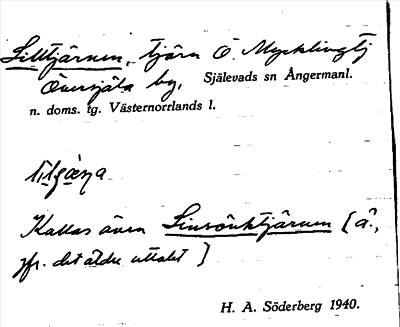 Lilltjärnen, tjärn Ö. Mycklingtj
Översjäla by, Själevads sn Ångermanl.
n. doms. tg. Västernorrlands l.
Kallas även Linsönktjärnen [å.,
jfr. det äldre uttalet]
H. A. Söderberg 1940.